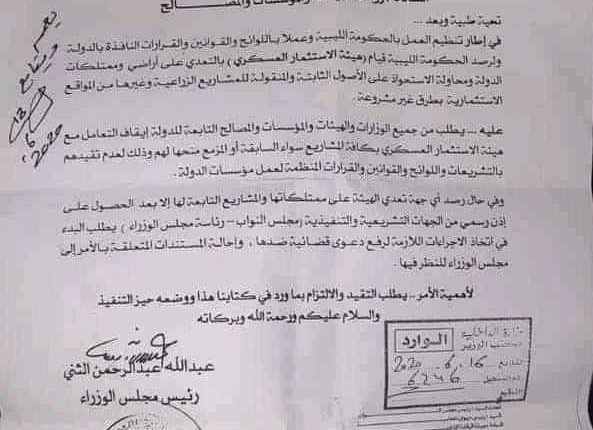 السادة / الوزارات والهيئات والمؤسسات والمصالح
تحية طيبة وبعد ...
في إطار تنظيم العمل بالحكومة الليبية وعملاً باللوائح والقوانين والقرارات النافذة بالدولة
ولرصد الحكومة الليبية قيام (هيئة الاستثمار العسكري) بالتعدي على أراضي وممتلكات
الدولة ومحاولة الاستحواة على الأصول الثابتة والمنقولة للمشاريع الزراعية وغيرها من المواقع
الاستثمارية بطرق غير مشروعة.
عليه ... يطلب من جميع الوزارات والهيئات والمؤسسات والمصالح التابعة للدولة إيقاف التعامل مع
هيئة الاستثمار العسكري بكافة المشاريع سواء السابقة أو المزمع منحها لهم وذلك لعدم تقيدهم
بالتشريعات واللوائح والقوانين والقرارات المنظمة لعمل مؤسسات الدولة.
وفي حال رصد أي جهة تعدي الهيئة على ممتلكاتها والمشاريع التابعة لها إلا بعد الحصول على
إذن رسمي من الجهات التشريعية والتنفيذية (مجلس النواب - رئاسة مجلس الوزراء) يطلب البدء
في اتخاذ الاجراءات اللازمة لرفع دعوى قضائية ضدها، وإحالة المستندات المتعلقة بالأمر إلى
مجلس الوزراء للنظر فيها.
لأهمية الأمر .. يطلب التقيد والالتزام بما ورد في كتابنا هذا ووضعه حيز التنفيذ
والسلام عليكم ورحمة الله وبركاته
عبدالله عبدالرحمن الثني
رئيس مجلس الوزراء
وزارة الداخلية
مكتب الوزير
الوارد
التاريخ 16 . 6 . 2020
6246